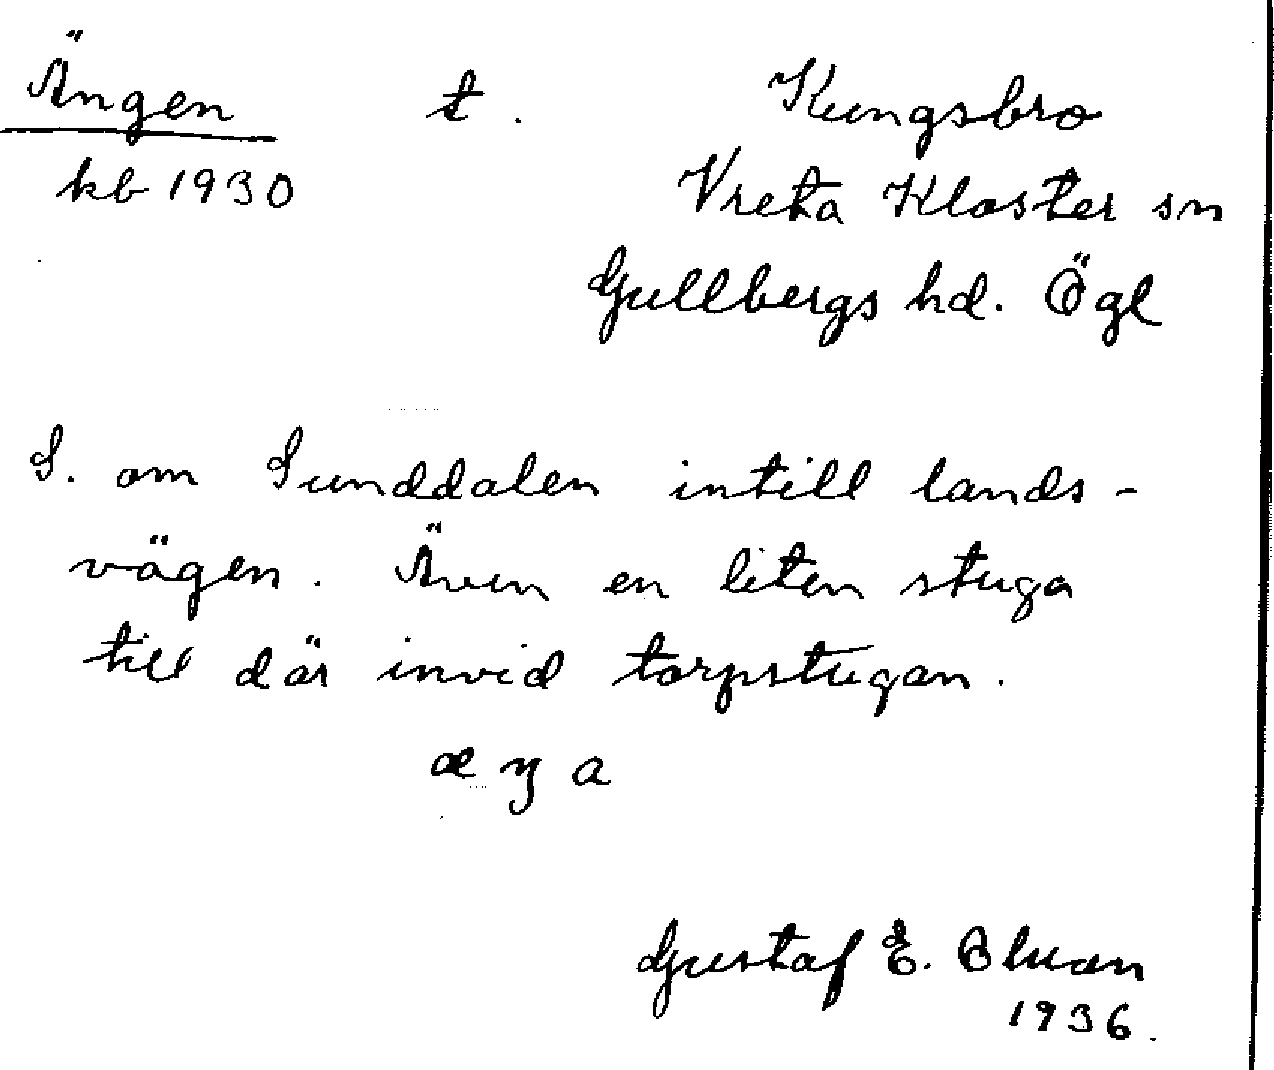 Ängen t. Kungsbro
kb 1930 Vreta Kloster sn
Gullbergs hd. Ögl
S. om Sunddalen intill lands-
vägen. Även en liten stuga
till där invid torpstugan.
Gustaf E.
1936.